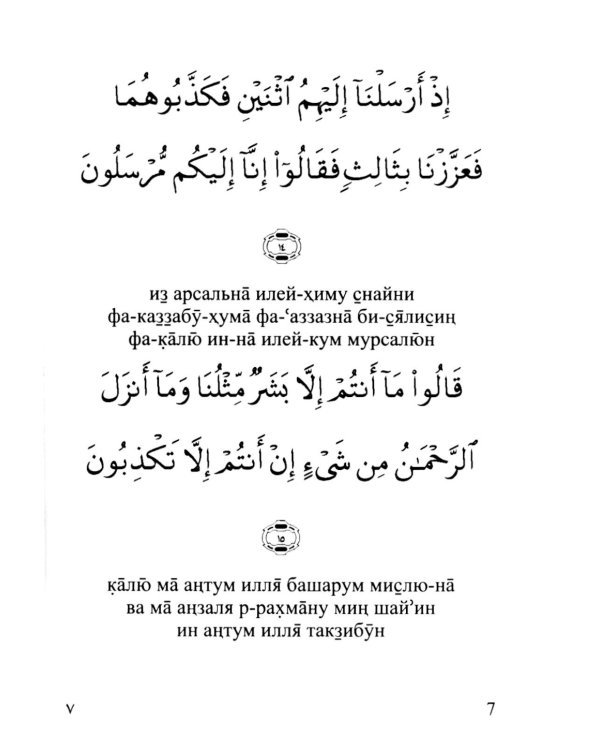 إِذْ أَرْسَلْنَآ إِلَيْهِمُ ٱثْنَيْنِ فَكَذَّبُوهُمَا
فَعَزَّزْنَا بِثَالِثٍ فَقَالُوٓا۟ إِنَّآ إِلَيْكُم مُّرْسَلُونَ
١٤
из̱ арсальна̄ илей-х̣иму с̱найни
фа-каз̱з̱абӯ-х̣ума̄ фа-‘аззазна̄ би-с̱я̄лис̱ин̣
фа-к̣а̄лю̄ ин-на̄ илей-кум мурсалю̄н
قَالُوا۟ مَآ أَنتُمْ إِلَّا بَشَرٌ مِّثْلُنَا وَمَآ أَنزَلَ
ٱلرَّحْمَـٰنُ مِن شَىْءٍ إِنْ أَنتُمْ إِلَّا تَكْذِبُونَ
١٥
к̣а̄лю̄ ма̄ ан̣тум илля̄ башарум мис̱лю-на̄
ва ма̄ ан̣заля р-рах̣ма̄ну мин̣ шай’ин
ин ан̣тум илля̄ такз̱ибӯн
٧ 7